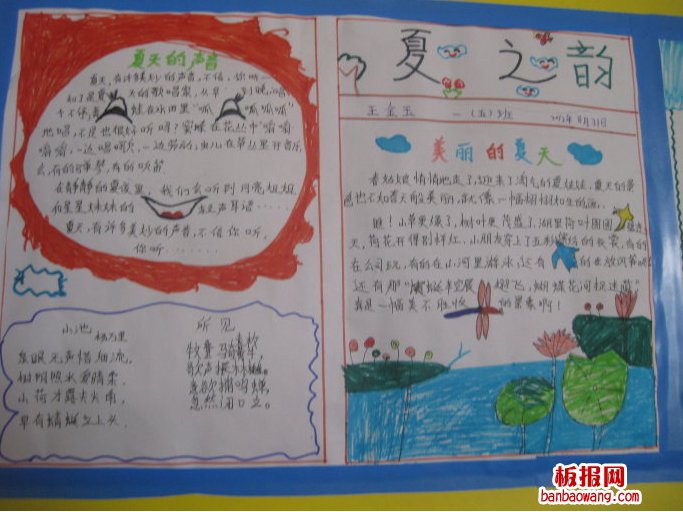 夏天的声音
夏天,有许多美妙的声音,不信,你听——
知了是夏天的歌唱家,从早到晚,唱
个不停,青蛙在水田里“呱呱呱”
地唱,不是也很好听吗?蜜蜂在花丛中“嗡嗡
嗡嗡,一边唱呗,一边劳动,虫儿在草丛里开音乐
会,有的弹琴,有的吹笛
在静静的夏夜里,我们会听到月亮姐姐
和星星妹妹的轻声耳语……
夏天,有许多美妙的声音,不信你听,
你听……
小池
杨万里
泉眼无声惜细流,
树阴照水爱晴柔.
小荷才露尖尖角,
早有蜻蜓立上头.
所见
牧童骑黄牛,
歌声振林樾。
意欲捕鸣蝉,
忽然闭口立。
夏之韵
王金玉 一(五)班
美丽的夏天
春姑娘悄悄地走了,迎来了淘气的夏娃娃,夏天的景
色也不如春天般美丽,就像一幅栩栩如生的画.
瞧!小草更绿了,树叶更茂盛了.湖里荷叶圆圆
天,荷花开得别样红,小朋友穿上了五彩的衣裳,有的
在公司玩,有的在小河里游泳,还有的在放风筝呢
还有那“蜻蜓半空展翅飞,蝴蝶花间捉迷藏”
真是一幅美不胜收的景象啊!
板报网
banbaowang.com